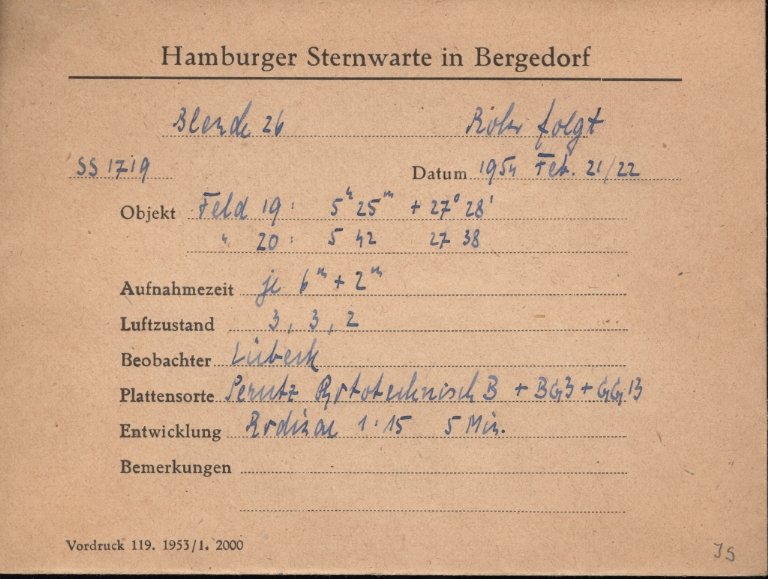 Hamburger Sternwarte in Bergedorf
Blende 26 Rohr folgt
SS 1719 Datum 1954 Feb. 21/22
Objekt Feld 19: 5h 25m + 27° 28'
" 20: 5 42 27 38
Aufnahmezeit je 6m + 2m
Luftzustand 3, 3, 2
Beobachter Lübeck
Plattensorte Perutz Phototechnisch B + BG3 + GG13
Entwicklung Rodinal 1:15 5 Min.
Bemerkungen
Vordruck 119. 1953/1. 2000